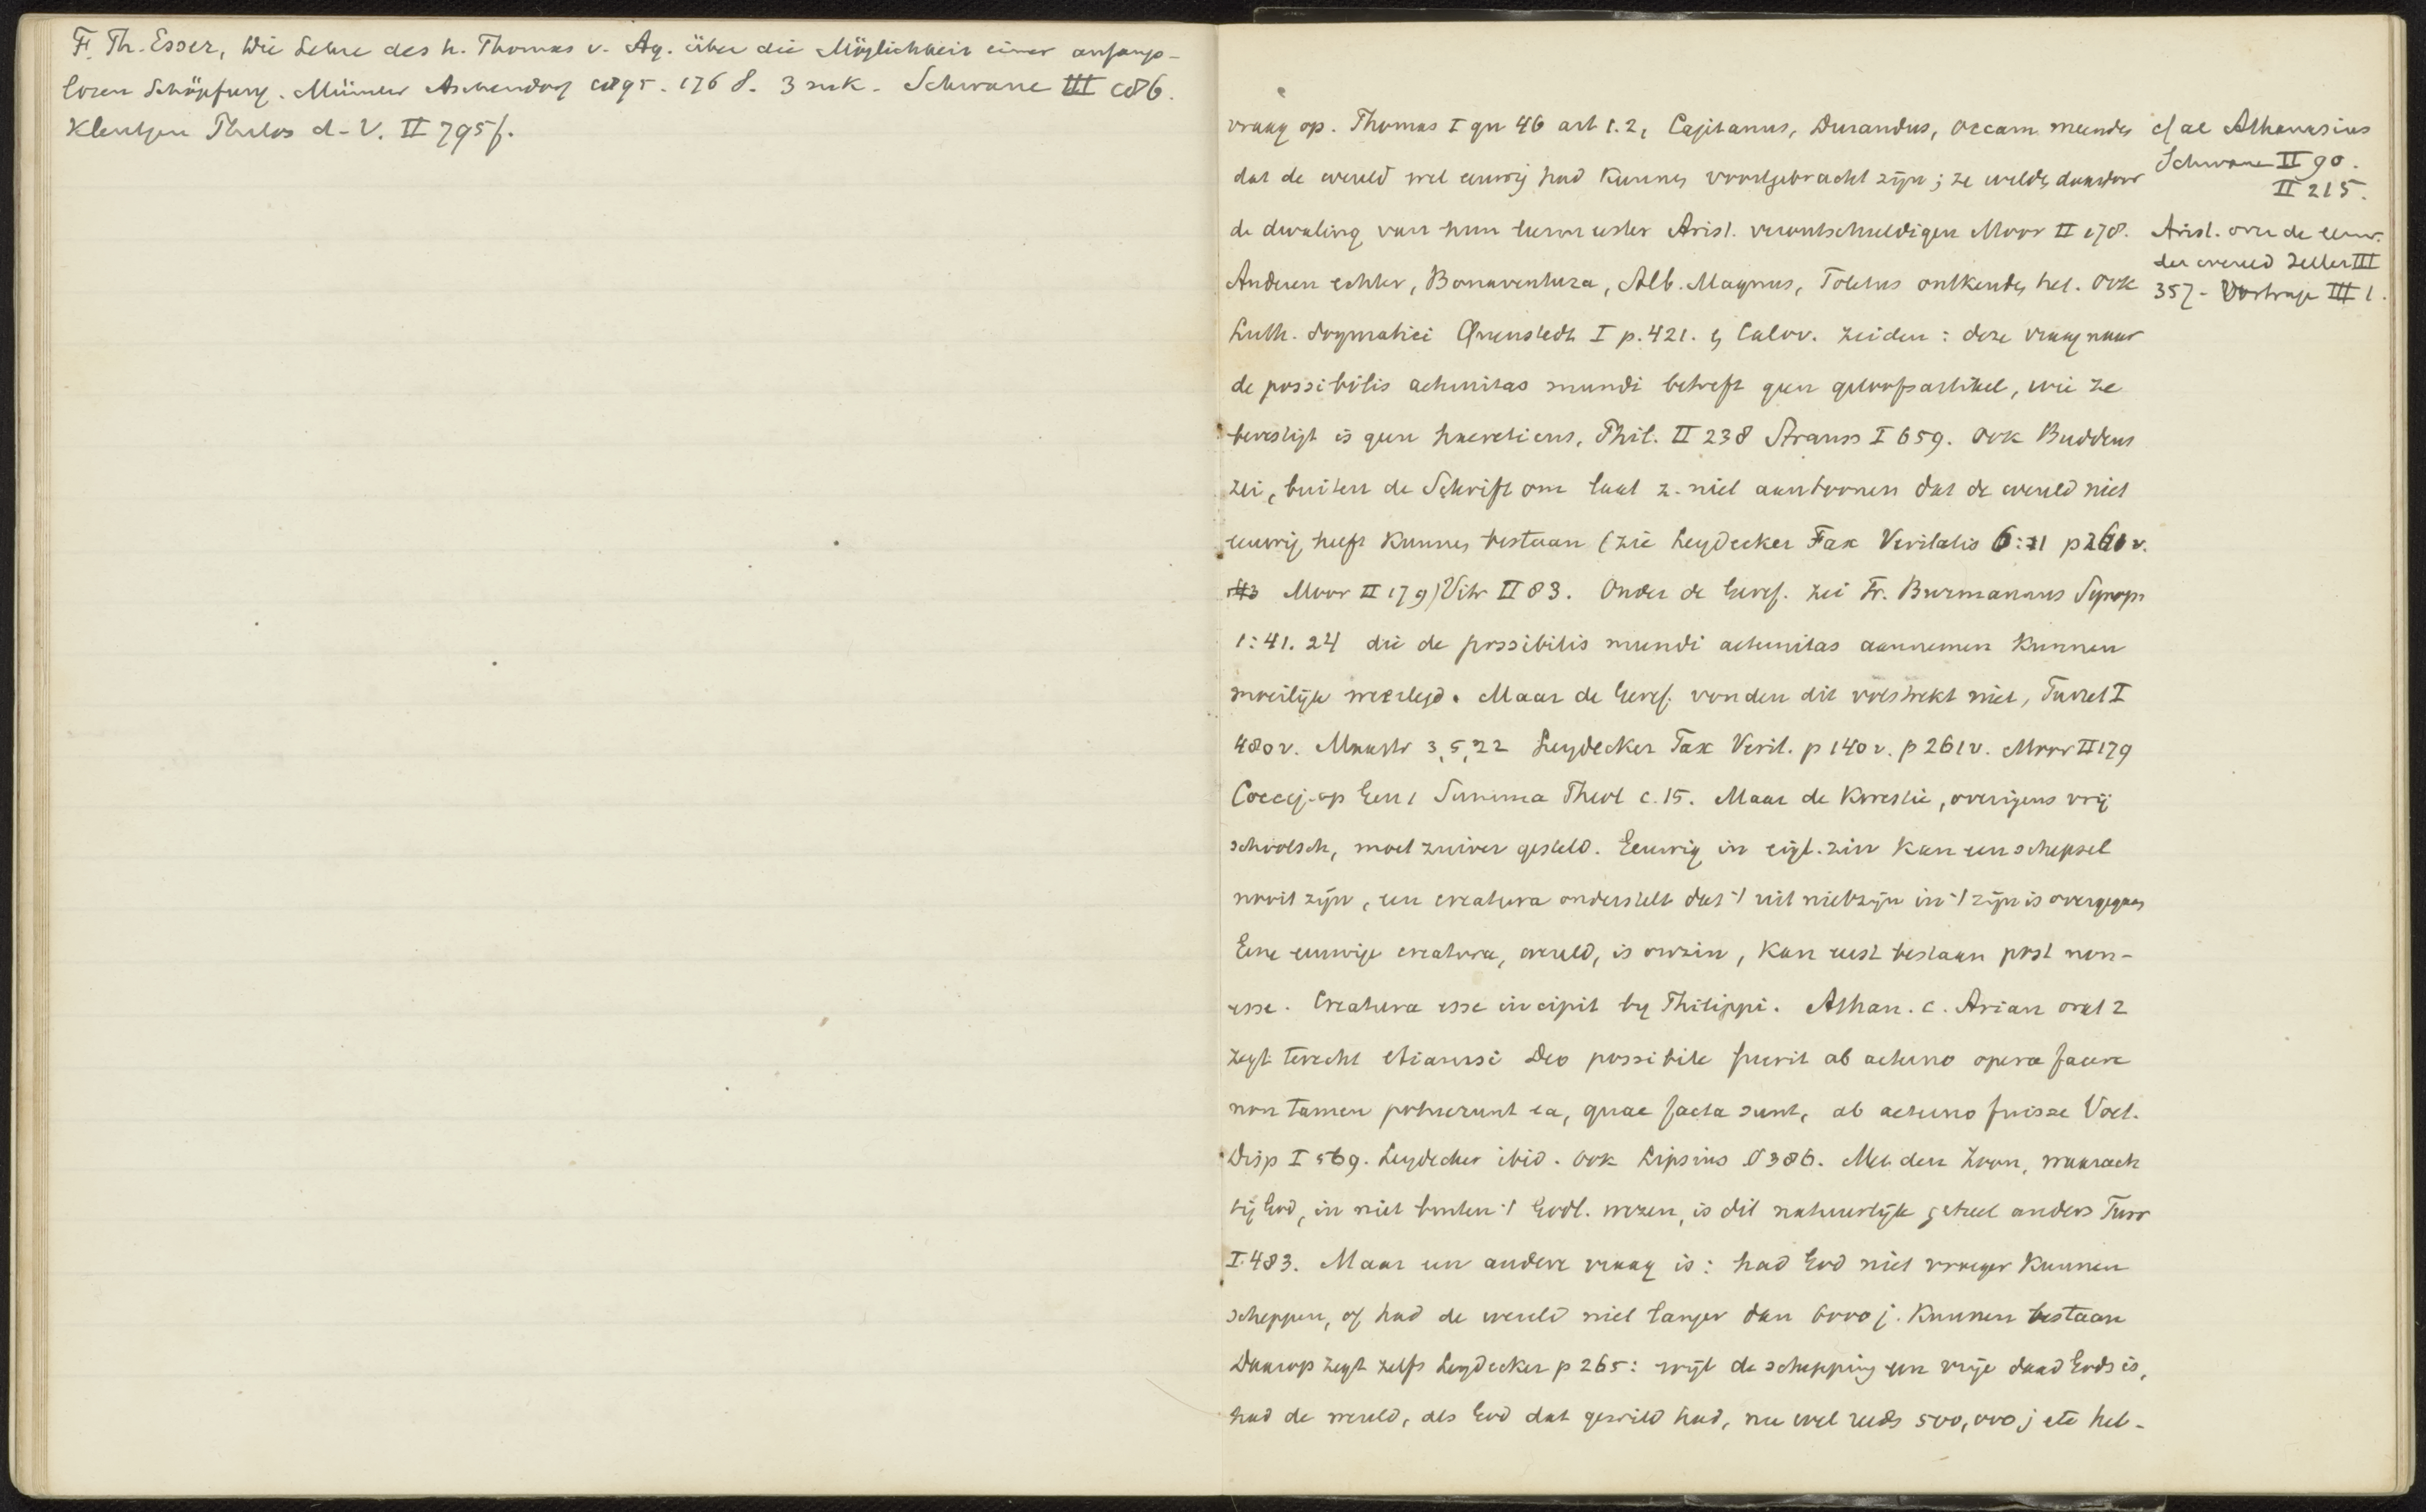 F. Th. Esser, Die Lehre des h. Thomas v. Aq. über die Möglichkeit einer anfangs-
losen Schöpfung. Münster Aschendorf 1895. 176 S. 3 mk. Schwane III 186.
Kleutgen Philos d. V. II 795f.
vraag op. Thomas I qu 46 art 1.2, Cajetanus, Durandus, Occam meenden
dat de wereld wel eeuwig had kunnen voortgebracht zijn; ze wilden daardoor
de dwaling van hun leermeester Arist. verontschuldigen Moor II 178.
Anderen echter, Bonaventura, Alb. Magnus, Toletus ontkenden het. Ook
Luth. dogmatici Quenstedt I p. 421. en Calov. zeiden: deze vraag naar
de possibilis aeternitas mundi betreft geen geloofsartikel, wie ze
bevestigt is geen haereticus, Phil. II 238 Strauss I 659. Ook Buddeus
zei, buiten de Schrift om laat z. niet aantoonen dat de wereld niet
eeuwig heeft kunnen bestaan (zie Leydecker Fax Veritatis 6:11 p 261 v.
Moor II 179) Vitr II 83. Onder de Geref. zei Fr. Burmannus Synops
1:41. 24 die de possibilis mundi aeternitas aannemen kunnen
moeilijk weerlegd. Maar de Geref. vonden dit volstrekt niet, Turret I
480 v. Maastr 3, 5, 22 Leydecker Fax Verit. p 140 v. p 261 v. Moor II 179
Coccej. op Gen 1 Summa Theol c. 15. Maar de kwestie, overigens vrij
schoolsch, moet zuiver gesteld. Eeuwig in eigl. zin kan een schepsel
nooit zijn, een creatura onderstelt dat 't uit nietzijn in 't zijn is overgegaan
Eene eeuwige creatura, wereld, is onzin, kan eerst bestaan post non-
esse. Creatura esse incipit by Philippi. Athan. c. Arian orat 2
zegt terecht etiamsi Deo possibile fuerit ab aeterno opera facere
non tamen potuerunt ea, quae facta sunt, ab aeterno fuisse Voet.
Disp I 569. Leydecker ibid. Ook Lipsius § 386. Met den Zoon, waarach
tig God, in niet buiten 't Godl. wezen, is dit natuurlijk geheel anders Turr
I. 483. Maar een andere vraag is: had God niet vroeger kunnen
scheppen, of had de wereld niet langer dan 6000 j. kunnen bestaan
Daarop zegt zelfs Leydecker p 265: wijl de schepping een vrije daad Gods is,
had de wereld, als God dat gewild had, nu wel reeds 500,000 j etc heb-
cf ae Athanasius
Schwane II 90.
II 215.
Arist. over de eeuw.
der wereld Zeller III
357 - Vortrage III 1.